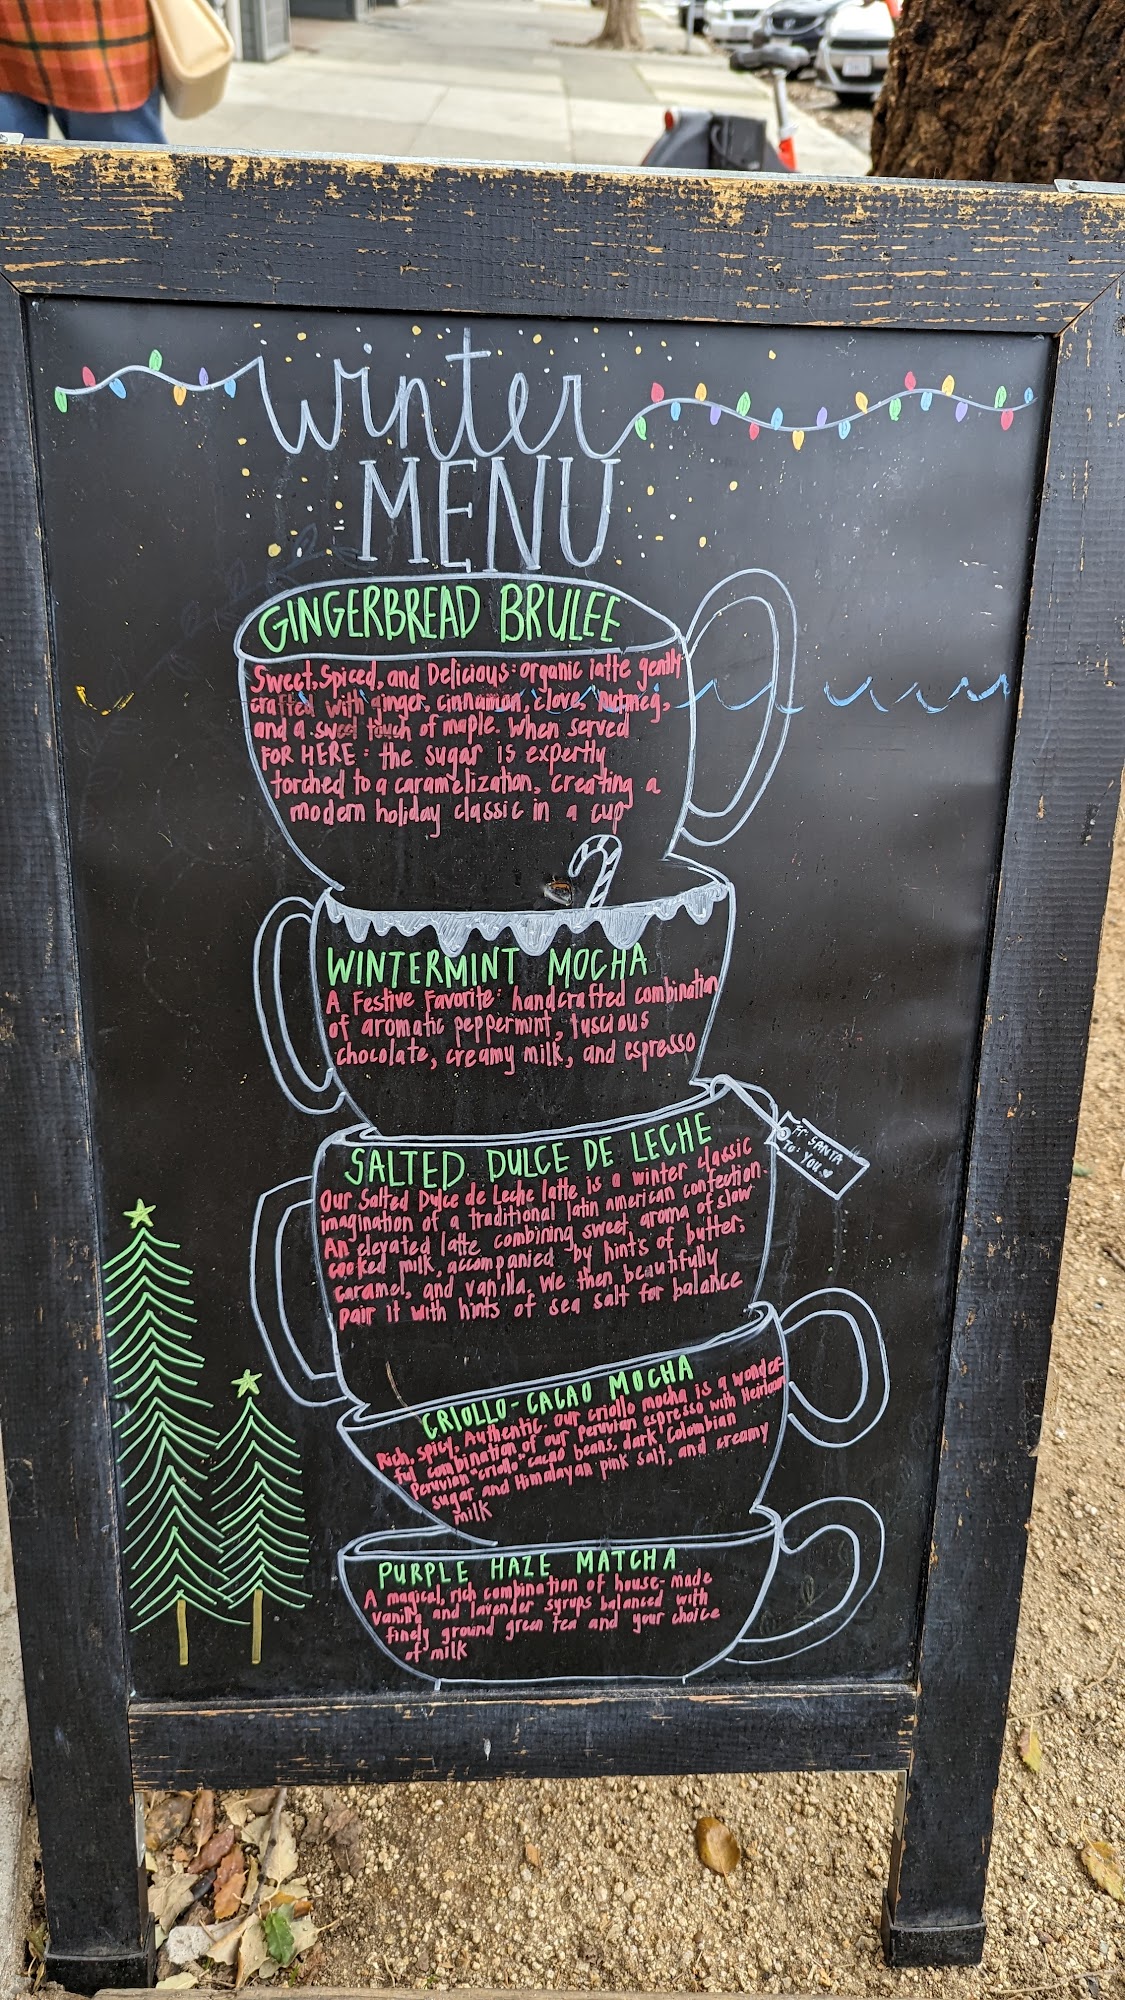 winter
MENU
GINGERBREAD BRULEE
Sweet, Spiced, and Delicious: organic latte gently
crafted with ginger, cinnamon, clove, nutmeg,
and a sweet touch of maple. When served
FOR HERE: the sugar is expertly
torched to a caramelization, creating a
modern holiday classic in a cup
WINTERMINT MOCHA
A Festive Favorite: handcrafted combination
of aromatic peppermint, luscious
chocolate, creamy milk, and espresso
Fr: SANTA
TO: YOU ♥
SALTED DULCE DE LECHE
Our Salted Dulce de Leche latte is a winter classic
imagination of a traditional latin american confection.
An elevated latte combining sweet aroma of slow-
cooked milk, accompanied by hints of butter,
caramel, and vanilla. We then beautifully
pair it with hints of sea salt for balance
CRIOLLO-CACAO MOCHA
Rich, Spicy, Authentic. Our criollo mocha is a wonder-
ful combination of our peruvian espresso with Heirloom
Peruvian "criollo" cacao beans, dark Colombian
sugar and Himalayan pink salt, and creamy
milk
PURPLE HAZE MATCHA
A magical, rich combination of house-made
vanilla and lavender syrups balanced with
finely ground green tea and your choice
of milk